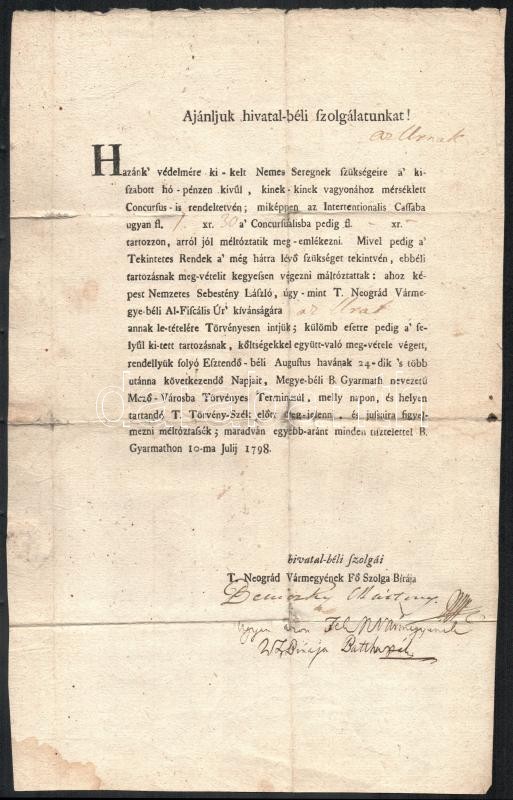 Ajánljuk hivatal-béli ſzolgálatunkat!
az Urnak
Hazánk' védelmére ki-kelt Nemes Seregnek ſzükségeire a' ki-
ſzabott hó-pénzen kivűl, kinek-kinek vagyonához mérséklett
Concurſus-is rendeltetvén; miképpen az Intertentionalis Caſſába
ugyan fl. 1. xr. 30 a' Concurſualisba pedig fl. - xr. -
tartozzon, arról jól méltóztatik meg-emlékezni. Mivel pedig a'
Tekintetes Rendek a' még hátra lévő ſzükséget tekintvén, ebbéli
tartozásnak meg-vételit kegyeſen végezni máltóztattak: ahoz ké-
pest Nemzetes Sebestény László, úgy-mint T. Neográd Várme-
gye-béli Al-Fiſcális Úr' kívánságára az Urat
annak le-tételére Törvényesen intjük; külömb esetre pedig a' fe-
lyűl ki-tett tartozásnak, költségekkel együtt-való meg-vétele végett,
rendellyük folyó Esztendő-béli Auguſtus havának 24-dik 's több
utánna következendő Napjait, Megye-béli B. Gyarmath nevezetű
Mező-Városba Törvényes Terminuſúl, melly napon, és helyen
tartandó T. Törvény-Szék előtt meg-jelenni, és juſſaira figyel-
mezni méltóztaſſék; maradván egyébb-aránt minden tiſztelettel B.
Gyarmathon 10-ma Julij 1798.
hivatal-béli ſzolgái
T. Neográd Vármegyének Fő Szolga Bírája
Ugyan azon
Bírája